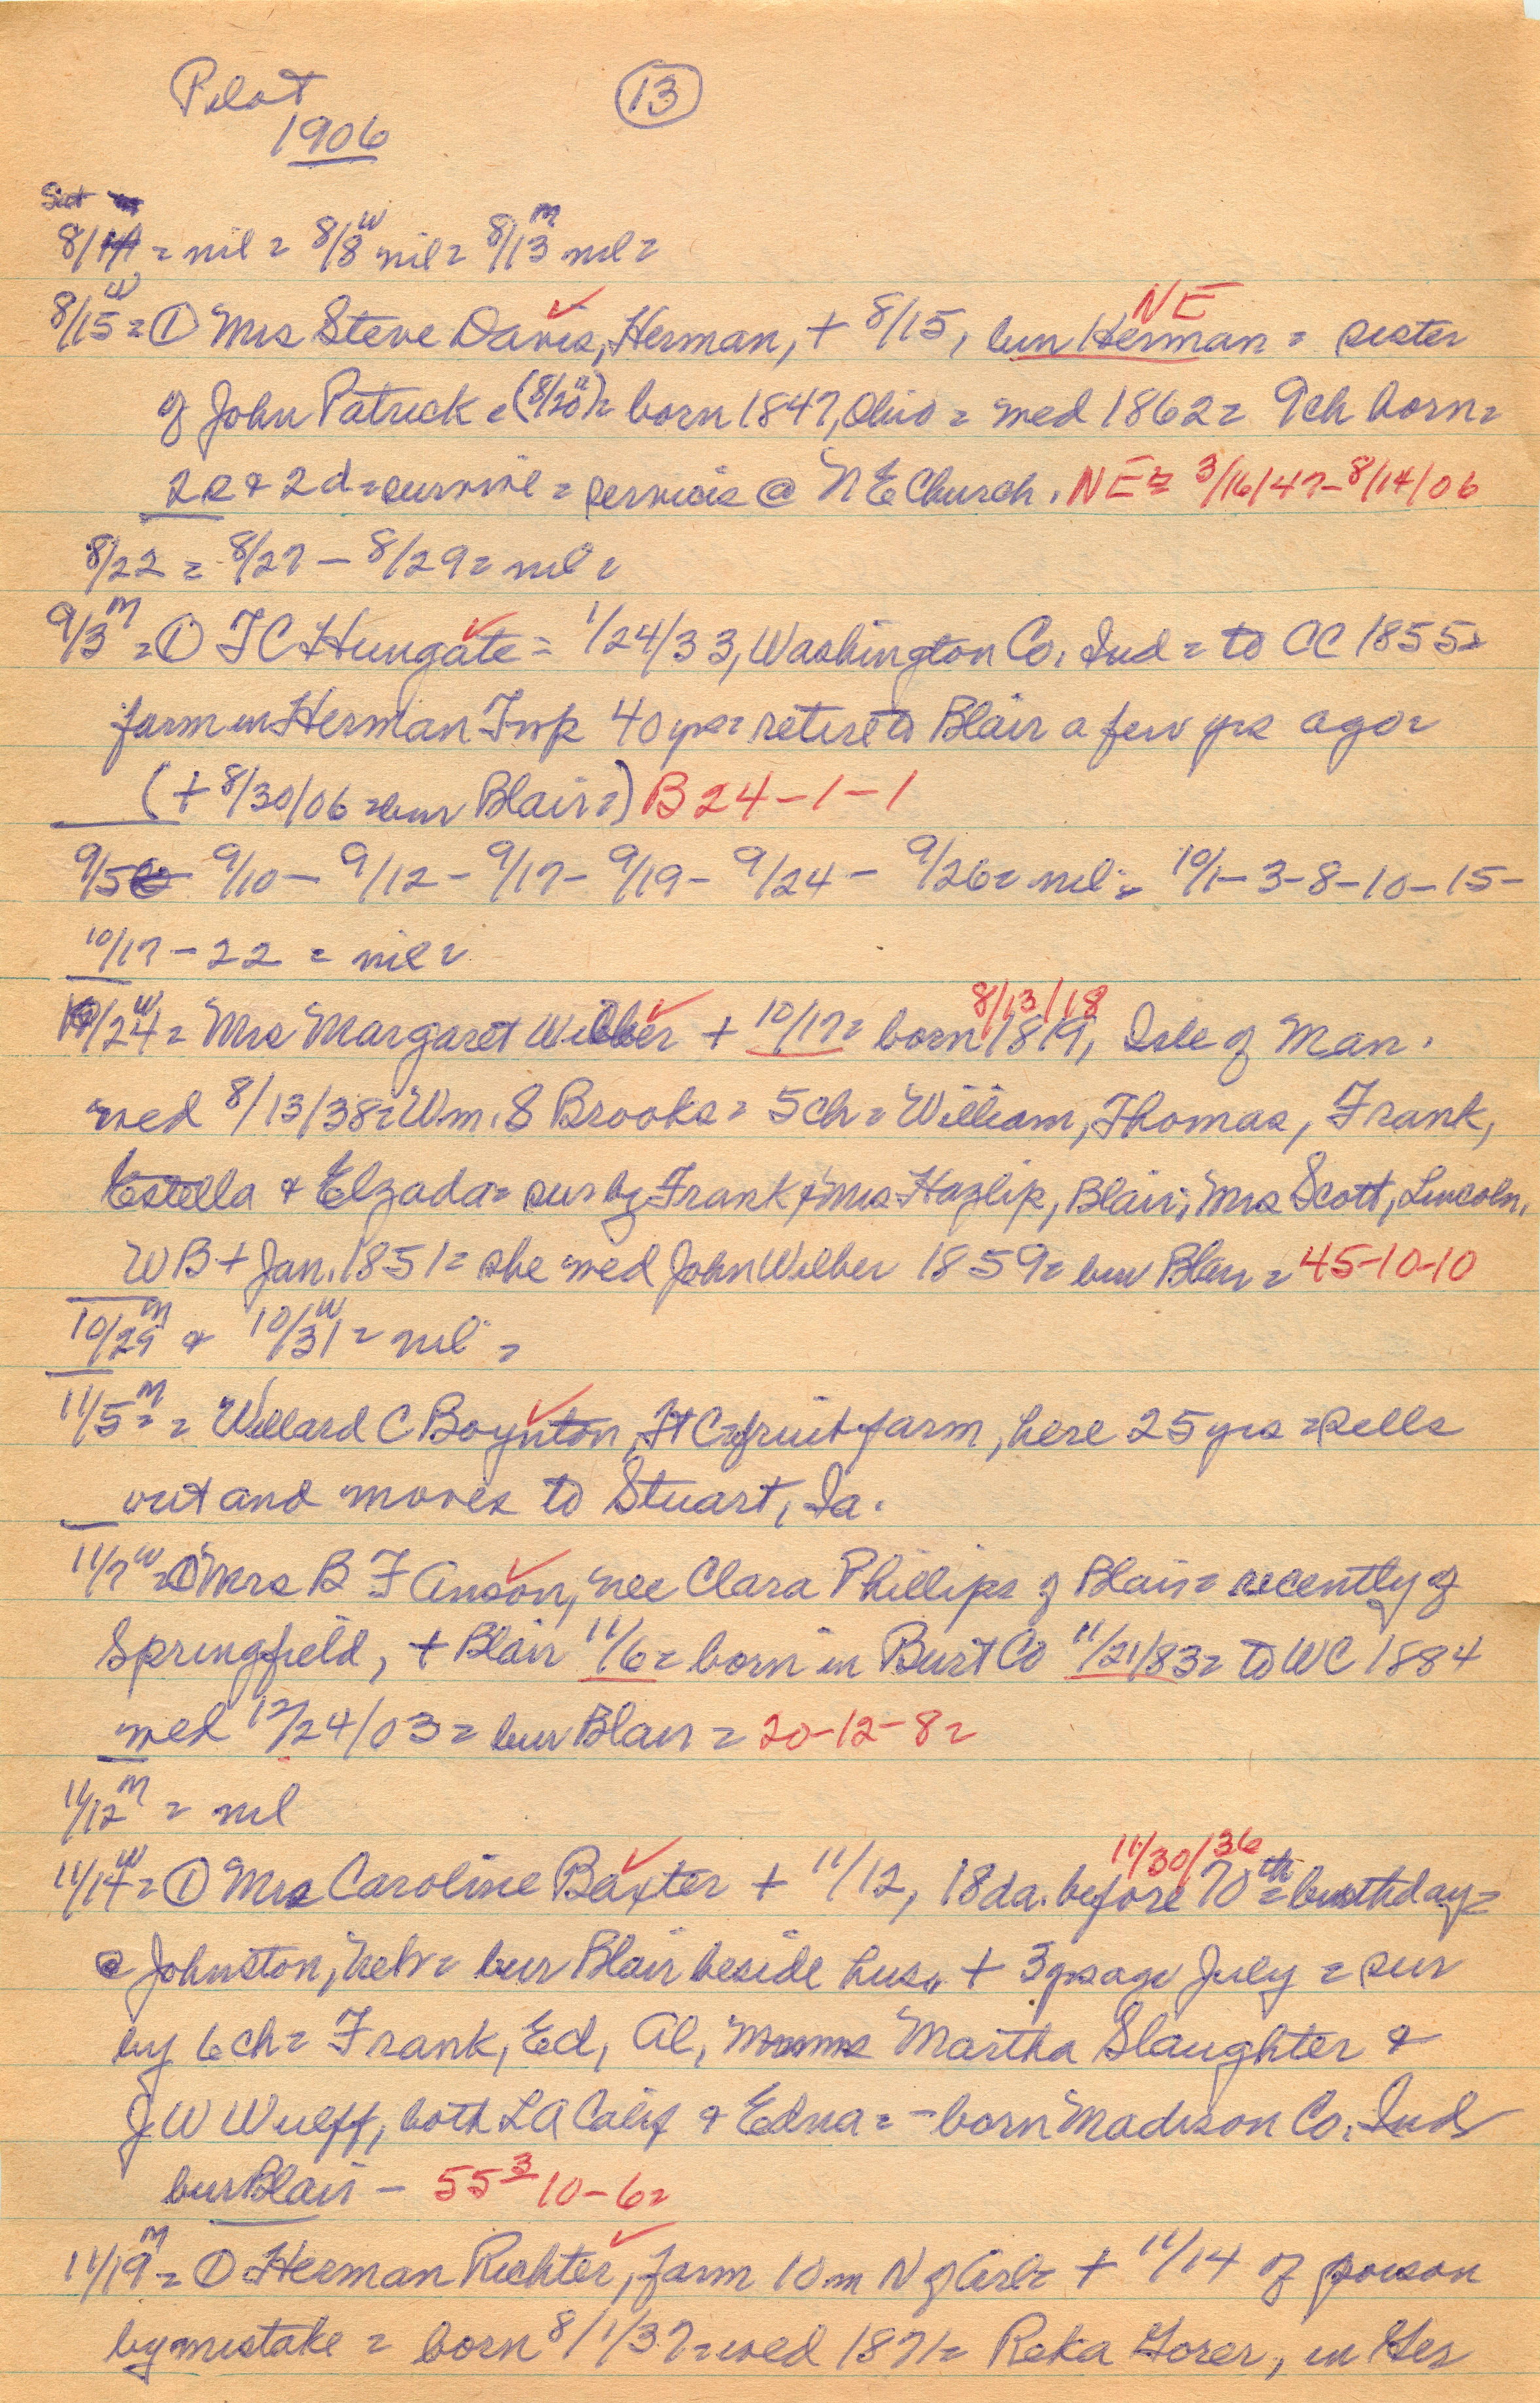 Pilot (13)
1906
8/1 = nil = 8/8 W nil = 8/13 M nil =
8/15 W = ① Mrs Steve Davis, Herman, + 8/15, bur Herman = sister
NE
of John Patrick = (8/20) = born 1847, Ohio = wed 1862 = 9ch born =
2s & 2d = survive = services @ NE Church. NE = 3/16/47 - 8/14/06
8/22 = 8/27 - 8/29 = nil =
9/3 M = ① T C Hungate = 1/24/33, Washington Co. Ind = to CC 1855 =
farm in Herman Twp 40 yrs = retire to Blair a few yrs ago =
(+ 8/30/06 = bur Blair =) B 24-1-1
9/5 9/10 - 9/12 - 9/17 - 9/19 - 9/24 - 9/26 = nil = 10/1 - 3 - 8 - 10 - 15 -
10/17 - 22 = nil =
8/13/18
10/24 W = Mrs Margaret Wilber + 10/17 = born 1819, Isle of Man.
wed 8/13/38 = Wm. S Brooks = 5ch = William, Thomas, Frank,
Estella & Elzada = sur by Frank & Mrs Hazlip, Blair; Mrs Scott, Lincoln.
WB + Jan. 1851 = she wed John Wilber 1859 = bur Blair = 45-10-10
10/29 M & 10/31 W = nil =
11/5 M = = Willard C Boynton, Ft C = fruit farm, here 25 yrs = sells
out and moves to Stuart, Ia.
11/7 W = ① Mrs B F Anson, nee Clara Phillips of Blair = recently of
Springfield, + Blair 11/6 = born in Burt Co 11/21/83 = to WC 1884
wed 12/24/03 = bur Blair = 20-12-8 =
11/12 M = nil
11/30/36
11/14 W = ① Mrs Caroline Baxter + 11/12, 18 da. before 70th = birthday =
@ Johnston, Neb = bur Blair beside hus., + 3 yrs ago July = sur
by 6 ch = Frank, Ed, Al, Mmmes Martha Slaughter &
J W Wulff, both LA Calif & Edna = - born Madison Co. Ind
bur Blair - 55 3 10-6 =
11/19 M = ① Herman Richter, farm 10 m N of Arl = + 11/14 of poison
by mistake = born 8/1/37 = wed 1871 = Reka, in Ger